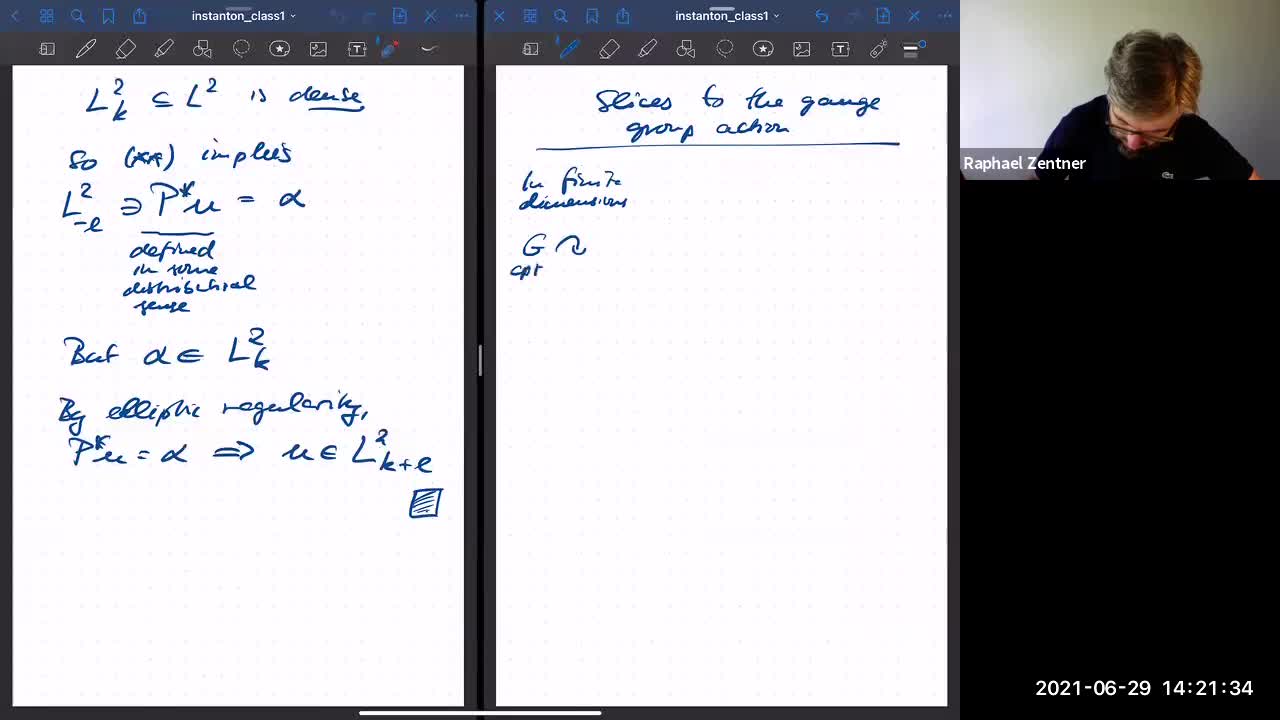 instanton_class1
L²_k ⊆ L² is dense
So (**) implies
L²_{-l} ∋ P*u = α
defined
in some
distributional
sense
But α ∈ L²_k
By elliptic regularity,
P*u = α ⟹ u ∈ L²_{k+l}
instanton_class1
Slices to the gauge
group action
In finite
dimensions
G
cpt
Raphael Zentner
2021-06-29 14:21:34